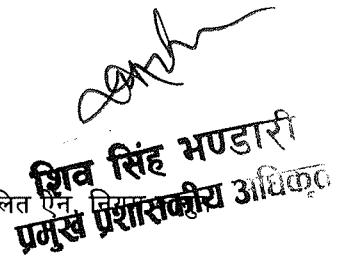 शिव सिंह भण्डारी
लित ऐन, नियम
प्रमुख प्रशासकीय अधिकृत